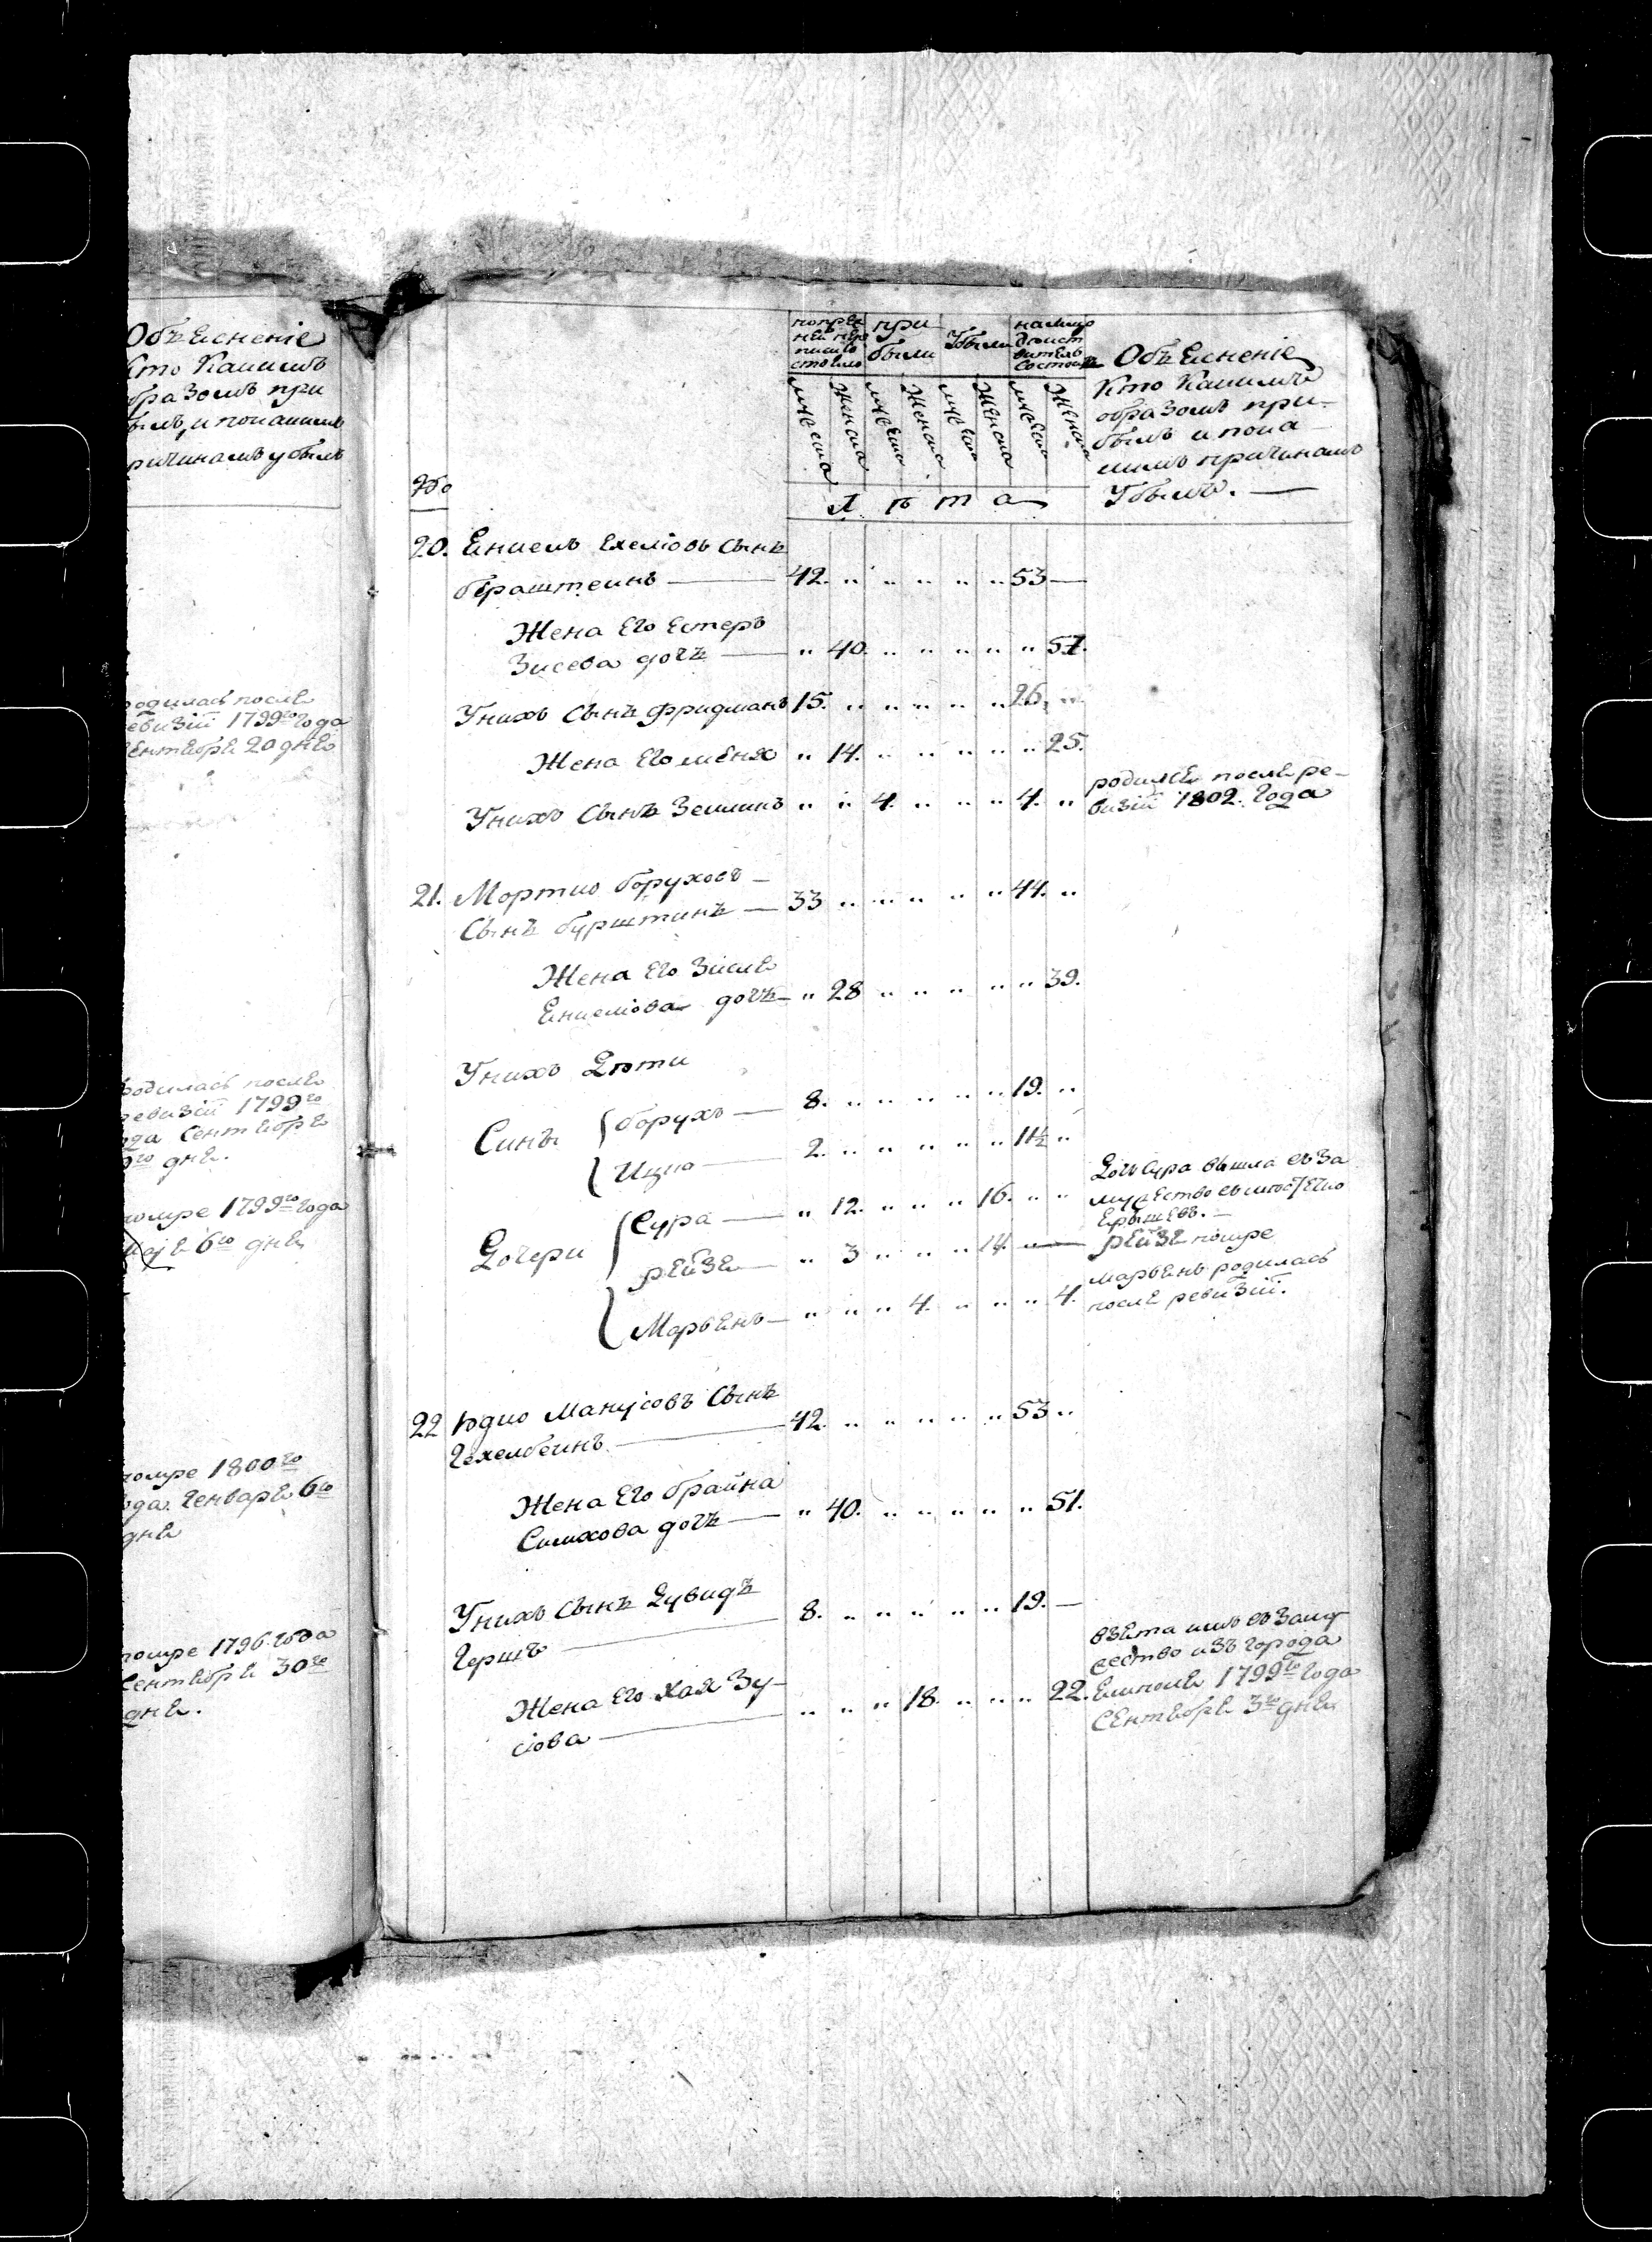 Объясненіе
кто какимъ
образомъ при
былъ, и покакимъ
ричинамъ убылъ
родилась после
ревизіи 1799го года
Сентября 20 дня
родилась после
ревизіи 1799го
года Сентября
дня.
помре 1799го года
6го дня
помре 1800го
года Генваря 6го
дня
помре 1796 года
Сентября 30го
дня.
попреж
ней пере
писи со
стояло
при
были
Убыли
налицо
дѣист
вительно
состоитъ
мужеска
женска
мужеска
женска
мужеска
женска
мужеска
женска
Лѣта
Объясненіе
Кто Какимъ
образомъ при
былъ и пока
кимъ причинамъ
Убылъ. —
№
20. Енкель сынъ
— 42. „ „ „ „ „ 53 —
Жена Его Естеръ
Зисева дочь — „ 40. „ „ „ „ „ 51.
Унихъ Сынъ Фридманъ 15. „ „ „ „ „ 26. „
Жена Его Меня „ 14. „ „ „ „ „ 25.
Унихъ Сынъ Зелманъ „ „ 4. „ „ „ 4. „
родился после ре-
визіи 1802. года
21. Мортко Боруховъ —
Сынъ Бурштинъ — 33 „ „ „ „ „ 44. „
Жена Его Зисля
Енкелiова дочь — „ 28 „ „ „ „ „ 39.
Унихъ Дѣти
Синъ { Борухъ — 8. „ „ „ „ „ 19. „
Ицко — 2. „ „ „ „ „ 11½ „
Дочери { Сура — „ 12. „ „ „ 16. „ „
Рейзя — „ 3 „ „ „ 14. —
Марьенъ — „ „ „ 4. „ „ „ 4.
Дочь Сура вышла въ за
мужество въ
Рейзя помре
Марьенъ родилась
после ревизіи.
22 Юдко Манусовъ Сынъ
— 42. „ „ „ „ „ 53 „
Жена Его Брайна
Симхова дочь — „ 40. „ „ „ „ „ 51.
Унихъ Сынъ Дувидъ
Гершъ — 8. „ „ „ „ „ 19. —
Жена Его Хая Зу-
сiова — „ „ „ 18. „ „ „ 22.
взята имъ въ замуж
ество изъ города
1799го года
Сентября 3го дня